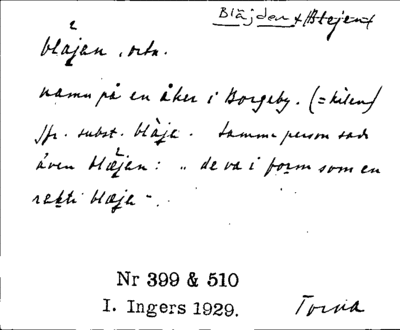 Bläjden + Blejen +
bläjan, ortn.
namn på en åker i Borgeby. (= kilen)
jfr. subst. bläja. Samma person sade
även blæjan: "de va i form som en
rekti blæja".
Nr 399 & 510
I. Ingers 1929. Torna